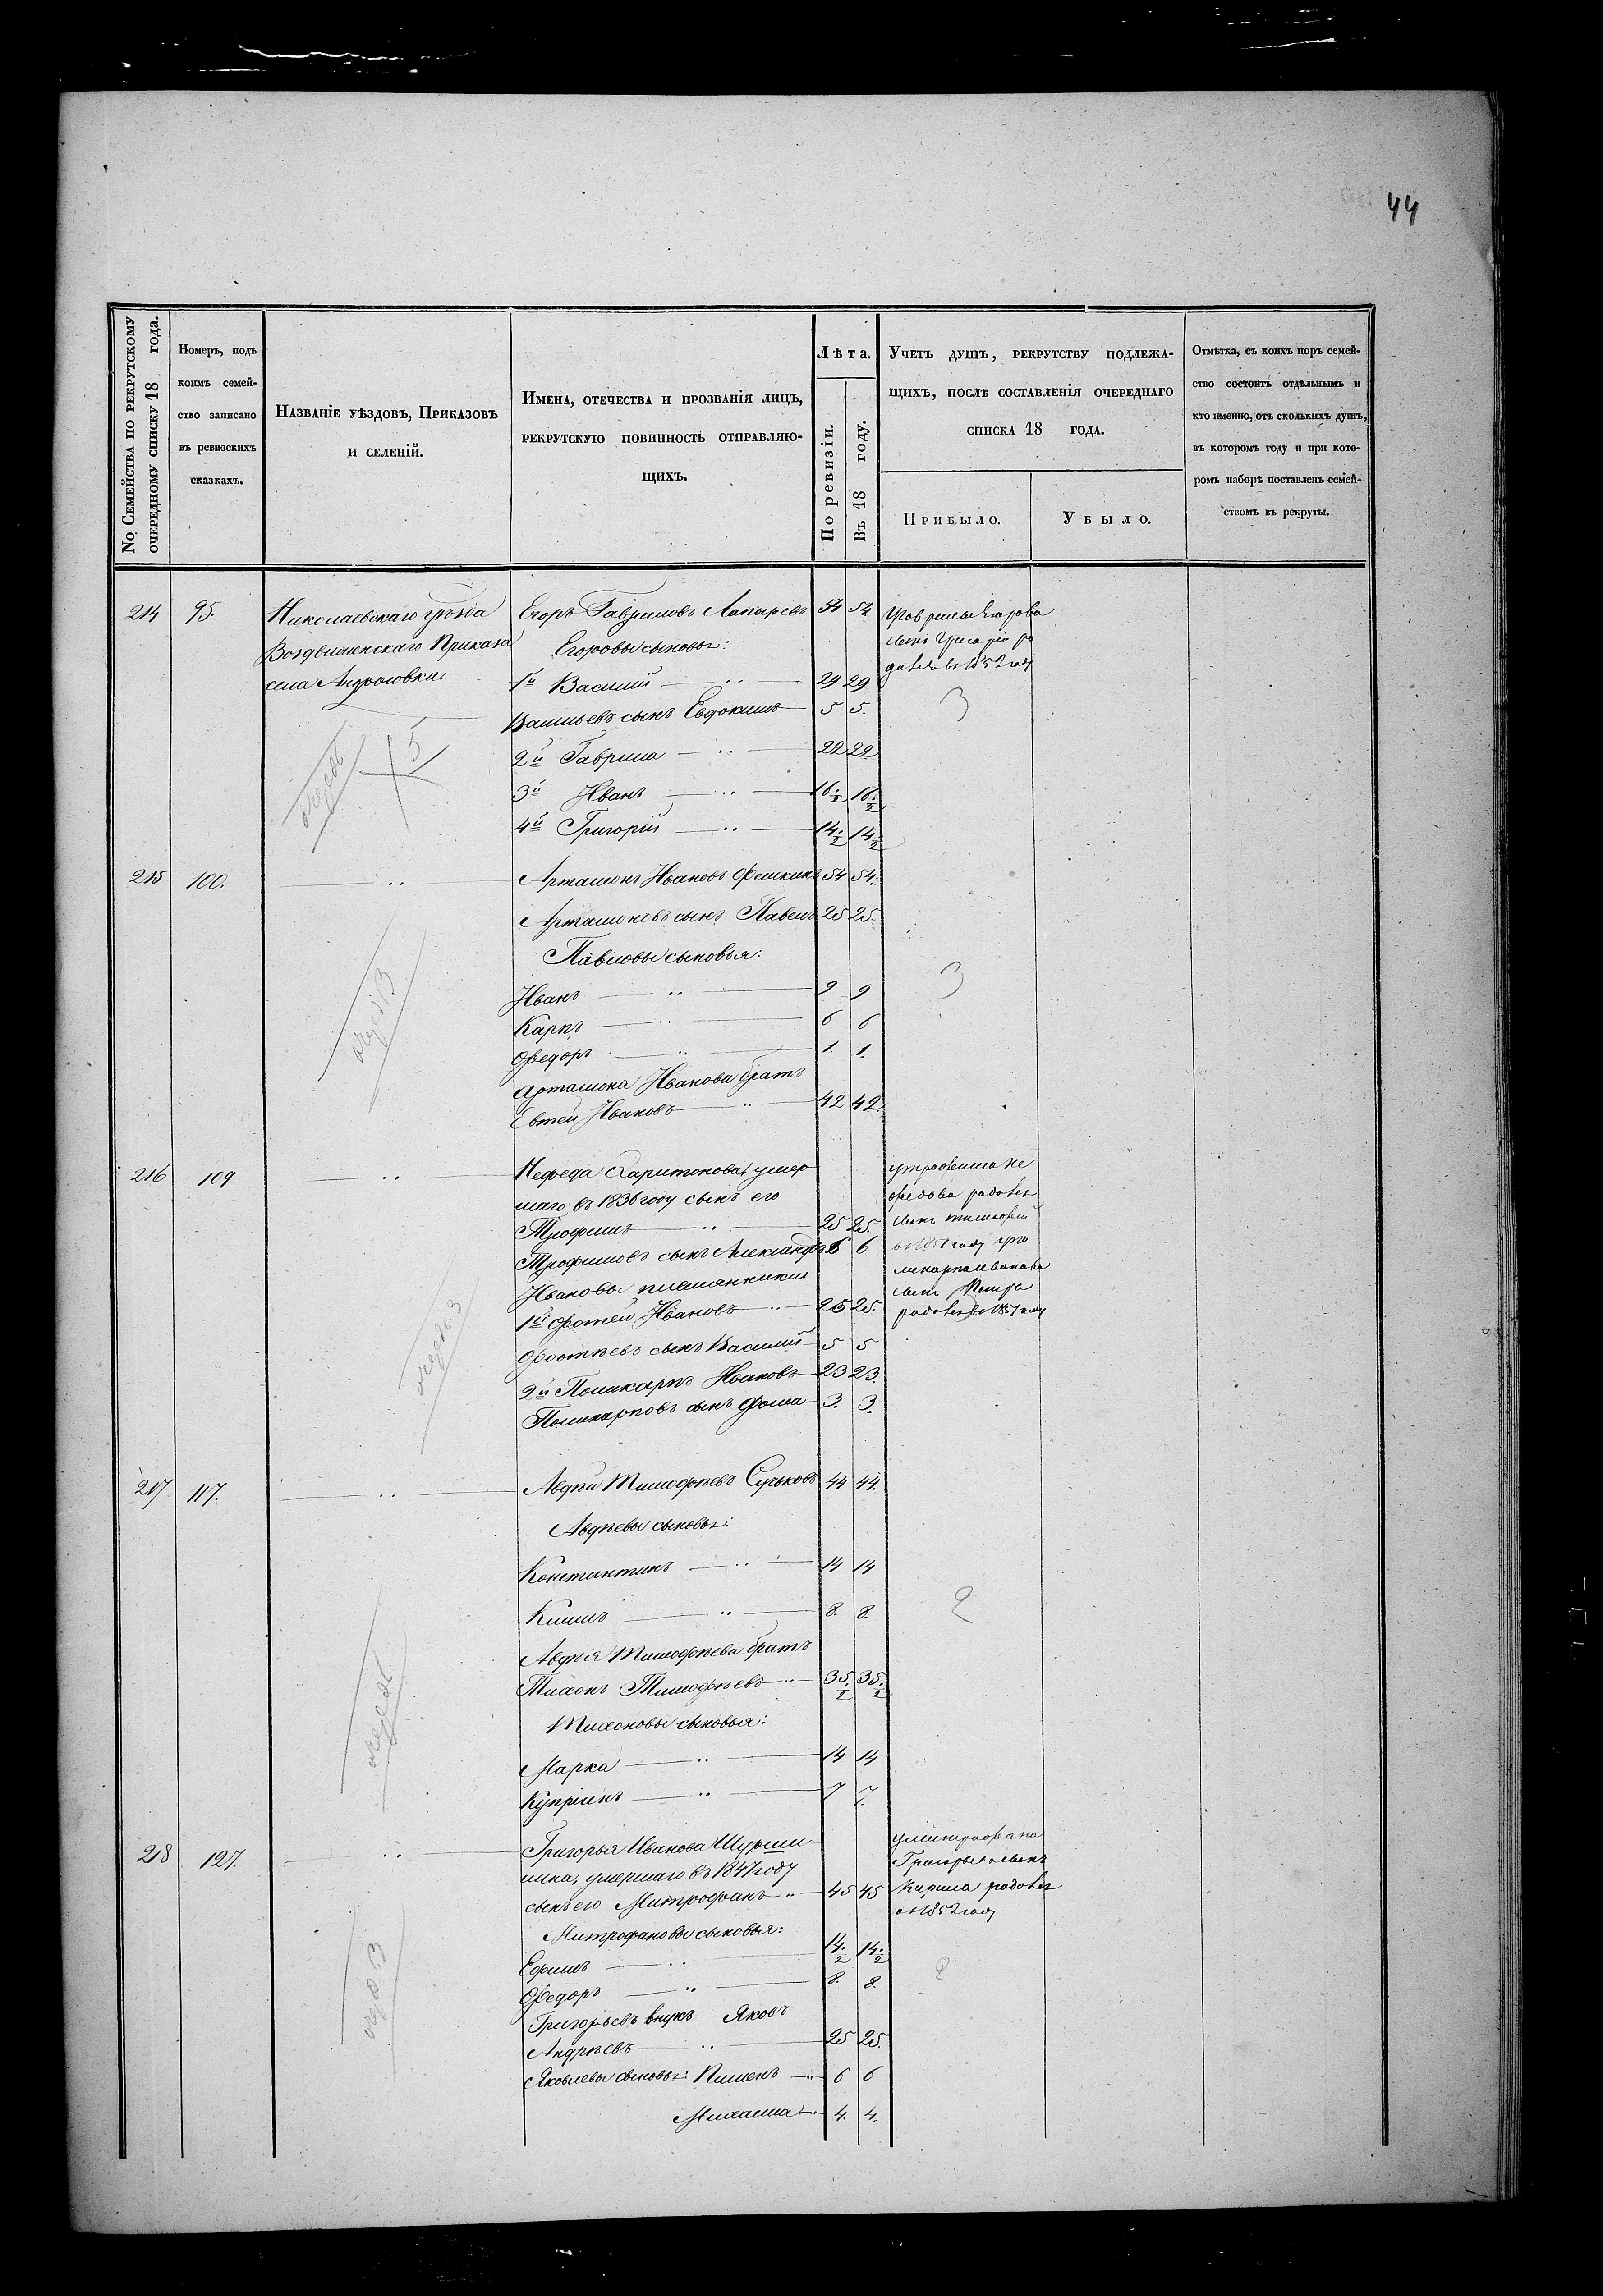 44
№ Семейства по рекрутскому очередному списку 18 года.
Номеръ, подъ коимъ семейство записано въ ревизскихъ сказкахъ.
Названіе уѣздовъ, Приказовъ и селеній.
Имена, отечества и прозванія лицъ, рекрутскую повинность отправляющихъ.
Лѣта.
По ревизіи.
Въ 18 году.
Учетъ душъ, рекрутству подлежащихъ, послѣ составленія очереднаго списка 18 года.
Прибыло.
Убыло.
Отмѣтка, съ коихъ поръ семейство состоитъ отдѣльнымъ и кто именно, отъ сколькихъ душъ, въ которомъ году и при которомъ наборѣ поставленъ семействомъ въ рекруты.
214 95. Николаевскаго уѣзда Егоръ Гавриловъ Лапыревъ 54 54
Воздвиженскаго Приказа Егоровы сыновья:
села Андросовки 1й Василій 29 29
у Гаврилы Егорова
сынъ Григорій ро
въ 1852 году
3
Васильевъ сынъ Евдокимъ 5 5.
5
2й Гаврила 22 22
3й Иванъ 16.½ 16.½
4й Григорій 14.½ 14.½
215 100. Артамонъ Ивановъ 54 54.
Артамоновъ сынъ Павелъ 25 25.
Павловы сыновья:
Иванъ 9 9
3
Карпъ 6 6
Федоръ 1. 1.
Артамона Иванова братъ
Евтей Ивановъ 42 42.
216 109 Нефеда Харитонова умер
шаго въ 1836 году сынъ его
Трофимъ 25 25.
Трофимовъ сынъ Александръ 6 6
Ивановы племянники
1й Фотей Ивановъ 25 25.
у Трофима Не
федова родился
сынъ Тимофей
въ 1851 году у По
ликарпа Иванова
сынъ Петра
родился въ 1851 году
Фотѣевъ сынъ Василій 5 5
2й Поликарпъ Ивановъ 23 23.
Поликарповъ сынъ Фома 3. 3.
217 117. Авдѣй Тимофѣевъ Сучковъ 44 44.
Авдѣевы сыновья:
Константинъ 14 14
Климъ 8. 8.
2
Авдѣя Тимофѣева братъ
Тихонъ Тимофѣевъ 35.½ 35.½
Тихоновы сыновья:
Марка 14 14
Купріянъ 7 7.
218 127. Григорья Иванова
умершаго въ 1847 году
сынъ его Митрофанъ 45 45
у Митрофана
Григорьева сынъ
Кирила родился
въ 1852 году
Митрофановы сыновья:
Ефимъ 14.½ 14.½
Федоръ 8. 8.
2
Григорьевъ внукъ Яковъ
Андрѣевъ 25 25.
Яковлевы сыновья: Пименъ 6 6
Михаила 4. 4.